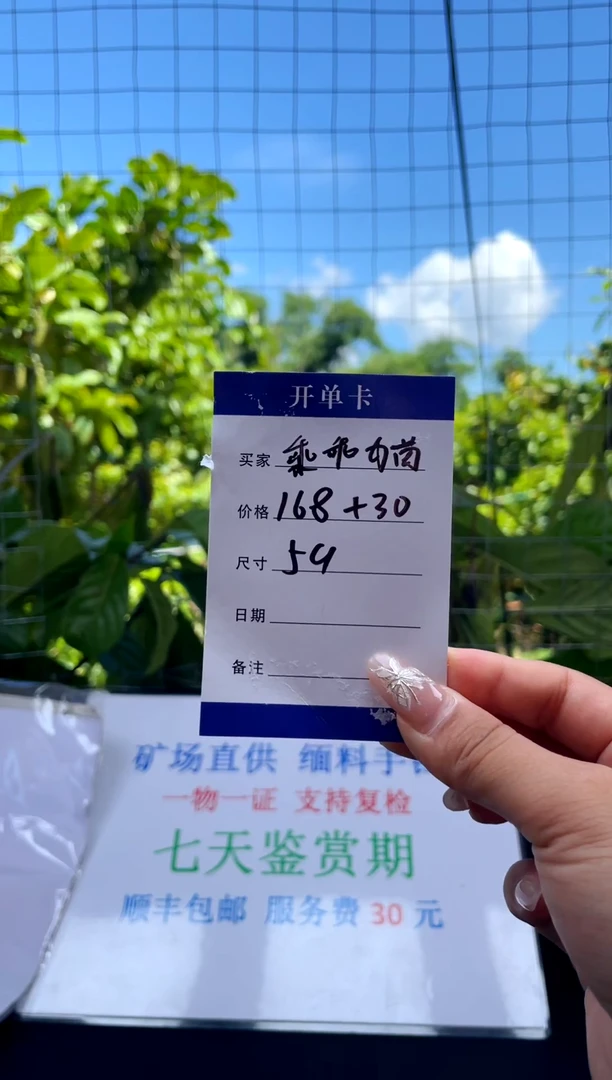 开单卡
买家 乖乖
价格 168+30
尺寸 54
日期
备注
矿场直供 缅料手
一物一证 支持复检
七天鉴赏期
顺丰包邮 服务费 30 元